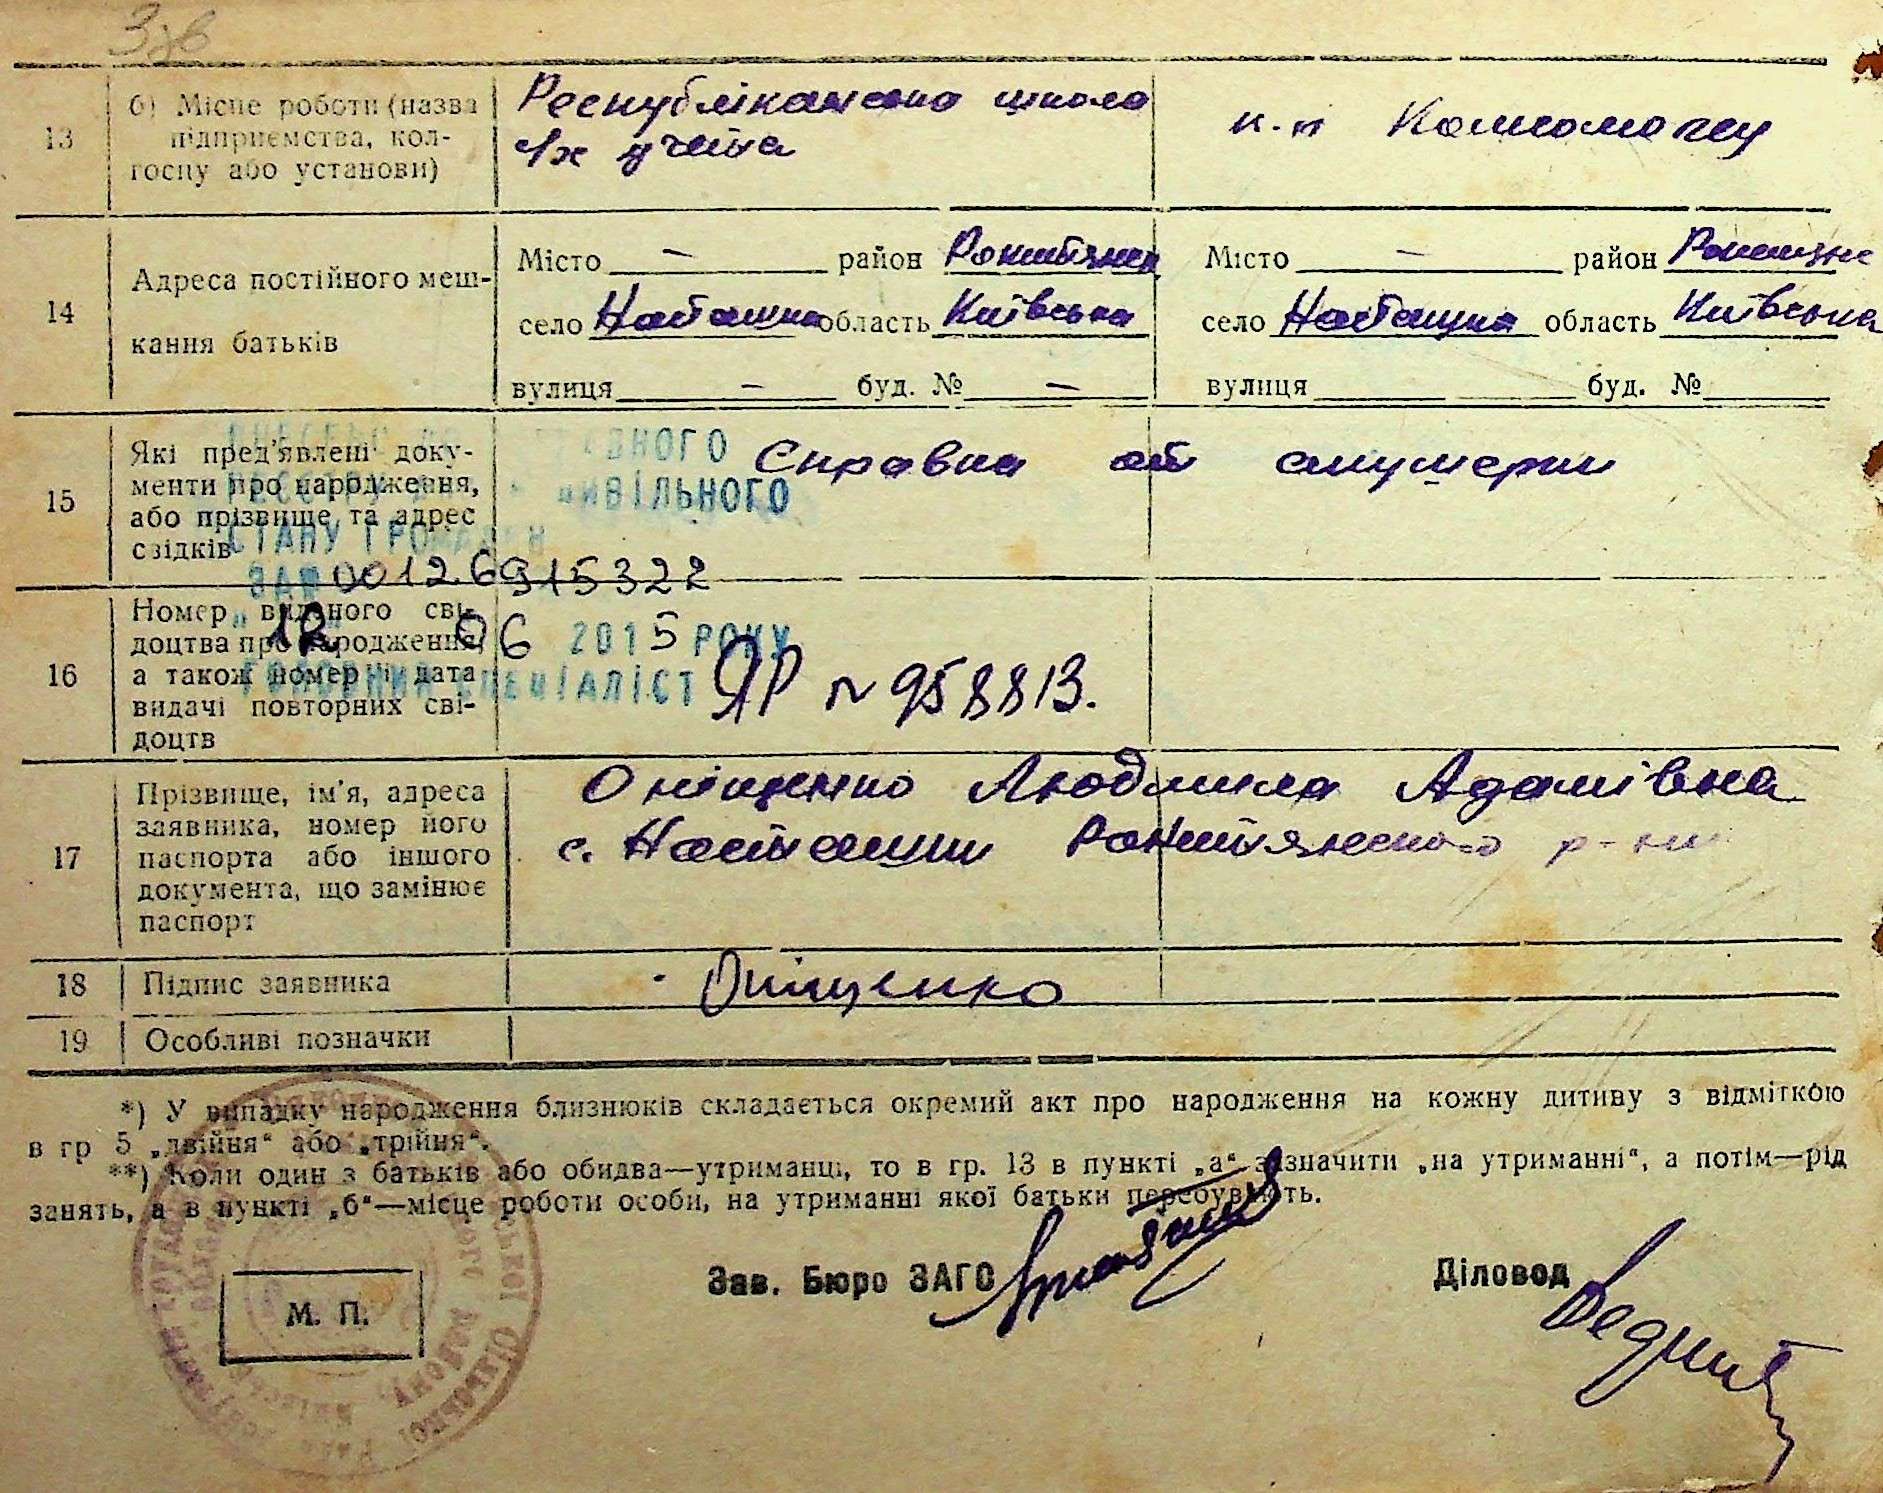 13
б) Місце роботи (назва
підприємства, кол-
госпу або установи)
Республіканська школа
к.п Комсомолец
14
Адреса постійного меш-
кання батьків
Місто — район Рокитянск
село Насташка область Київська
вулиця — буд. № —
Місто — район Рокитянс
село Насташка область Київська
вулиця буд. №
15
Які пред'явлені доку-
менти про народження,
або прізвище та адрес
свідків
Справка от акушерки
ВНЕСЕНО ДО ДЕРЖАВНОГО
РЕЄСТРУ ЦИВІЛЬНОГО
СТАНУ ГРОМАДЯН
ЗА № 00126915322
"12" 06 2015 РОКУ
ГОЛОВНИЙ СПЕЦІАЛІСТ
16
Номер виданого сві-
доцтва про народження,
а також номер і дата
видачі повторних сві-
доцтв
ЯР № 958813.
17
Прізвище, ім'я, адреса
заявника, номер його
паспорта або іншого
документа, що замінює
паспорт
Оніщенко Людмила Адамівна
с. Насташки Рокитянского р-ну
18
Підпис заявника
Оніщенко
19
Особливі позначки
*) У випадку народження близнюків складається окремий акт про народження на кожну дитиву з відміткою
в гр 5 „двійня“ або „трійня“.
**) Коли один з батьків або обидва—утриманці, то в гр. 13 в пункті „а“ зазначити „на утриманні“, а потім—рід
занять, а в пункті „б“—місце роботи особи, на утриманні якої батьки перебувають.
Зав. Бюро ЗАГС
Діловод
М. П.